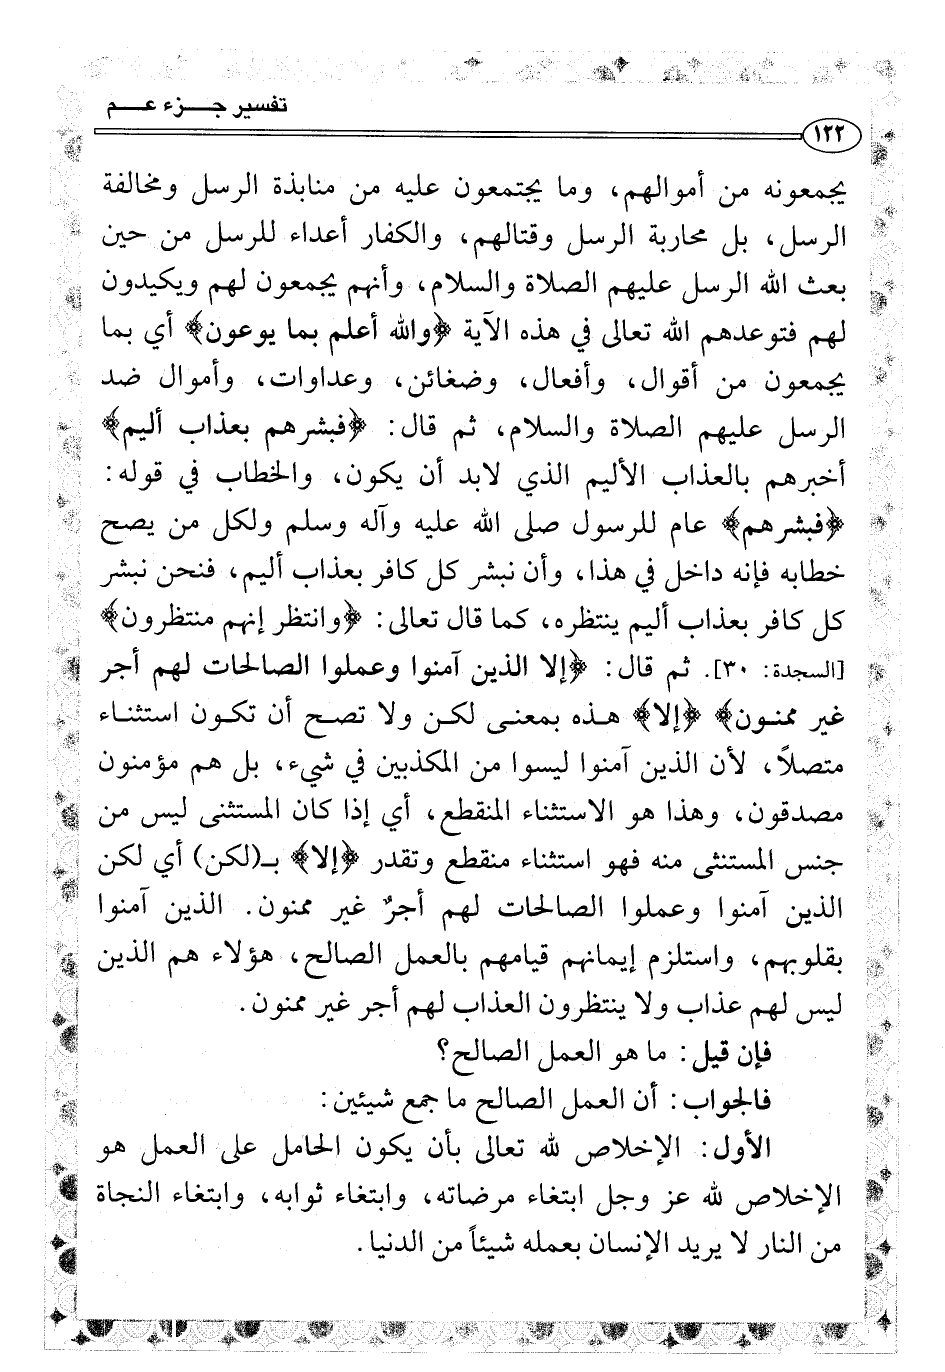 تفسير جـــزء عـــم
١٢٢
يجمعونه من أموالهم، وما يجتمعون عليه من منابذة الرسل ومخالفة
الرسل، بل محاربة الرسل وقتالهم، والكفار أعداء للرسل من حين
بعث الله الرسل عليهم الصلاة والسلام، وأنهم يجمعون لهم ويكيدون
لهم فتوعدهم الله تعالى في هذه الآية ﴿والله أعلم بما يوعون﴾ أي بما
يجمعون من أقوال، وأفعال، وضغائن، وعداوات، وأموال ضد
الرسل عليهم الصلاة والسلام، ثم قال: ﴿فبشرهم بعذاب أليم﴾
أخبرهم بالعذاب الأليم الذي لابد أن يكون، والخطاب في قوله:
﴿فبشرهم﴾ عام للرسول صلى الله عليه وآله وسلم ولكل من يصح
خطابه فإنه داخل في هذا، وأن نبشر كل كافر بعذاب أليم، فنحن نبشر
كل كافر بعذاب أليم ينتظره، كما قال تعالى: ﴿وانتظر إنهم منتظرون﴾
[السجدة: ٣٠]. ثم قال: ﴿إلا الذين آمنوا وعملوا الصالحات لهم أجر
غير ممنون﴾ ﴿إلا﴾ هذه بمعنى لكن ولا تصح أن تكون استثناء
متصلاً، لأن الذين آمنوا ليسوا من المكذبين في شيء، بل هم مؤمنون
مصدقون، وهذا هو الاستثناء المنقطع، أي إذا كان المستثنى ليس من
جنس المستنثى منه فهو استثناء منقطع وتقدر ﴿إلا﴾ بـ(لكن) أي لكن
الذين آمنوا وعملوا الصالحات لهم أجرٌ غير ممنون. الذين آمنوا
بقلوبهم، واستلزم إيمانهم قيامهم بالعمل الصالح، هؤلاء هم الذين
ليس لهم عذاب ولا ينتظرون العذاب لهم أجر غير ممنون.
فإن قيل: ما هو العمل الصالح؟
فالجواب: أن العمل الصالح ما جمع شيئين:
الأول: الإخلاص لله تعالى بأن يكون الحامل على العمل هو
الإخلاص لله عز وجل ابتغاء مرضاته، وابتغاء ثوابه، وابتغاء النجاة
من النار لا يريد الإنسان بعمله شيئاً من الدنيا.